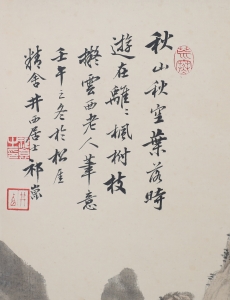 秋山秋空葉落時
遊在離〻楓樹枝
擬雲西老人筆意
壬午之冬於松崖
精舍井西居士祁崇